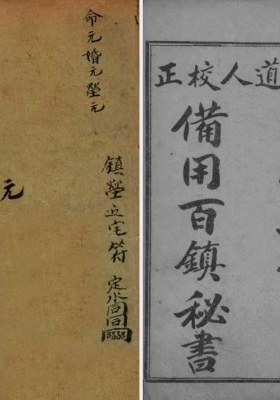 命元婚元塋元
鎮塋宅符
元
道人校正
備用百鎮秘書